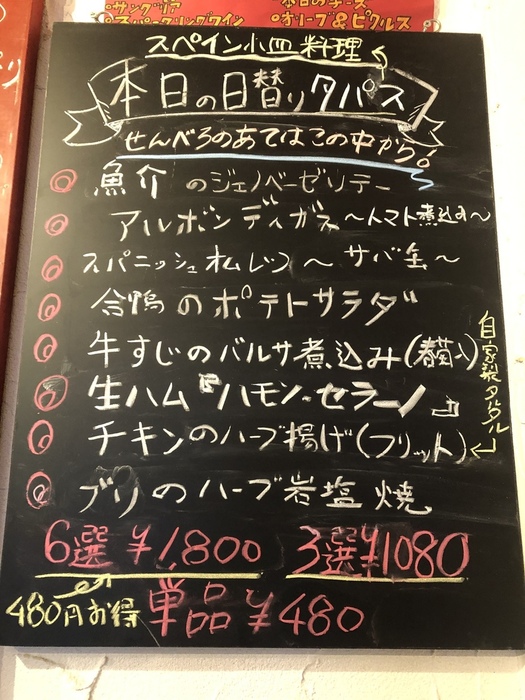 サングリア
本日のチーズ
スパークリングワイン
オリーブ&ピクルス
スペイン小皿料理
本日の日替りタパス
せんべろのあてはこの中から!
魚介のジェノベーゼソテー
アルボンディガス〜トマト煮込み〜
スパニッシュオムレツ〜サバ缶〜
合鴨のポテトサラダ
牛すじのバルサ煮込み
生ハム『ハモン・セラーノ』
チキンのハーブ揚げ(フリット)
自家製タルタル
ブリのハーブ岩塩焼
6選¥1,800
3選¥1080
480円お得
単品¥480